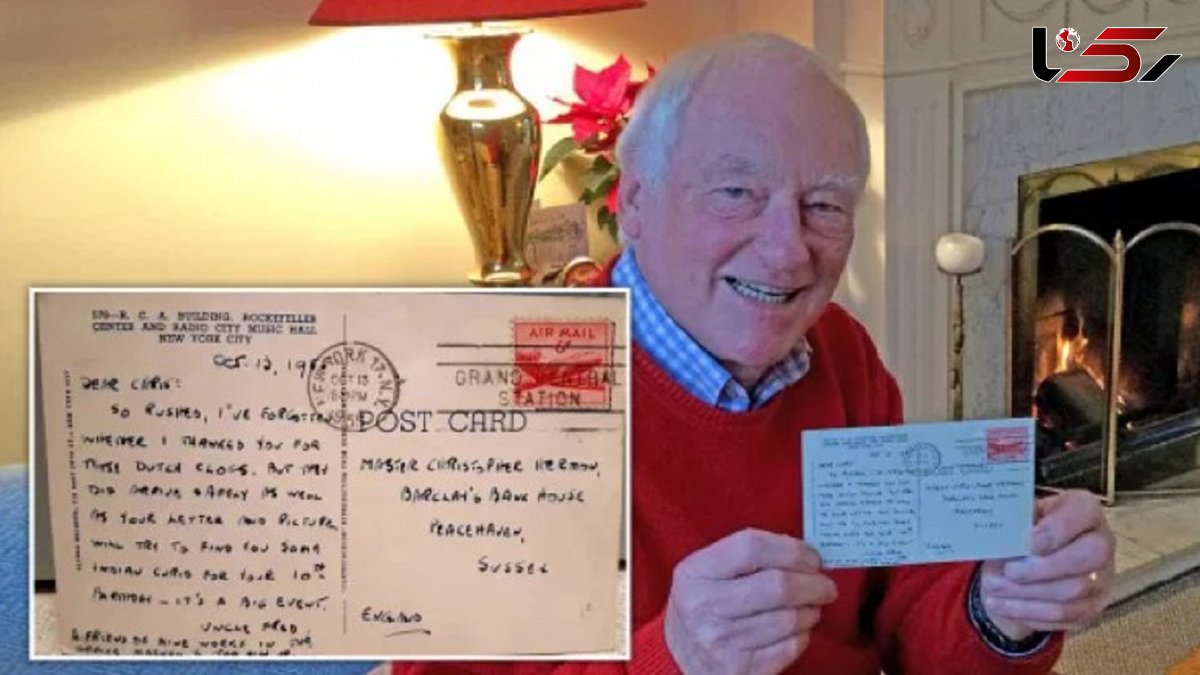 570—R. C. A. BUILDING, ROCKEFELLER
CENTER AND RADIO CITY MUSIC HALL
NEW YORK CITY
OCT. 13, 19
DEAR CHRIS:
SO RUSHED, I'VE FORGOTTEN
WHETHER I THANKED YOU FOR
THOSE DUTCH CLOGS. BUT THEY
DID ARRIVE SAFELY AS WELL
AS YOUR LETTER AND PICTURE,
WILL TRY TO FIND YOU SOME
INDIAN CURIO FOR YOUR 10TH
BIRTHDAY — IT'S A BIG EVENT.
UNCLE FRED
A FRIEND OF MINE WORKS IN THE
NEW YORK 17, N.Y.
OCT 13
PM
AIR MAIL
6¢
GRAND CENTRAL
STATION
POST CARD
MASTER CHRISTOPHER HERMON,
BARCLAY'S BANK HOUSE
PEACEHAVEN,
SUSSEX
ENGLAND